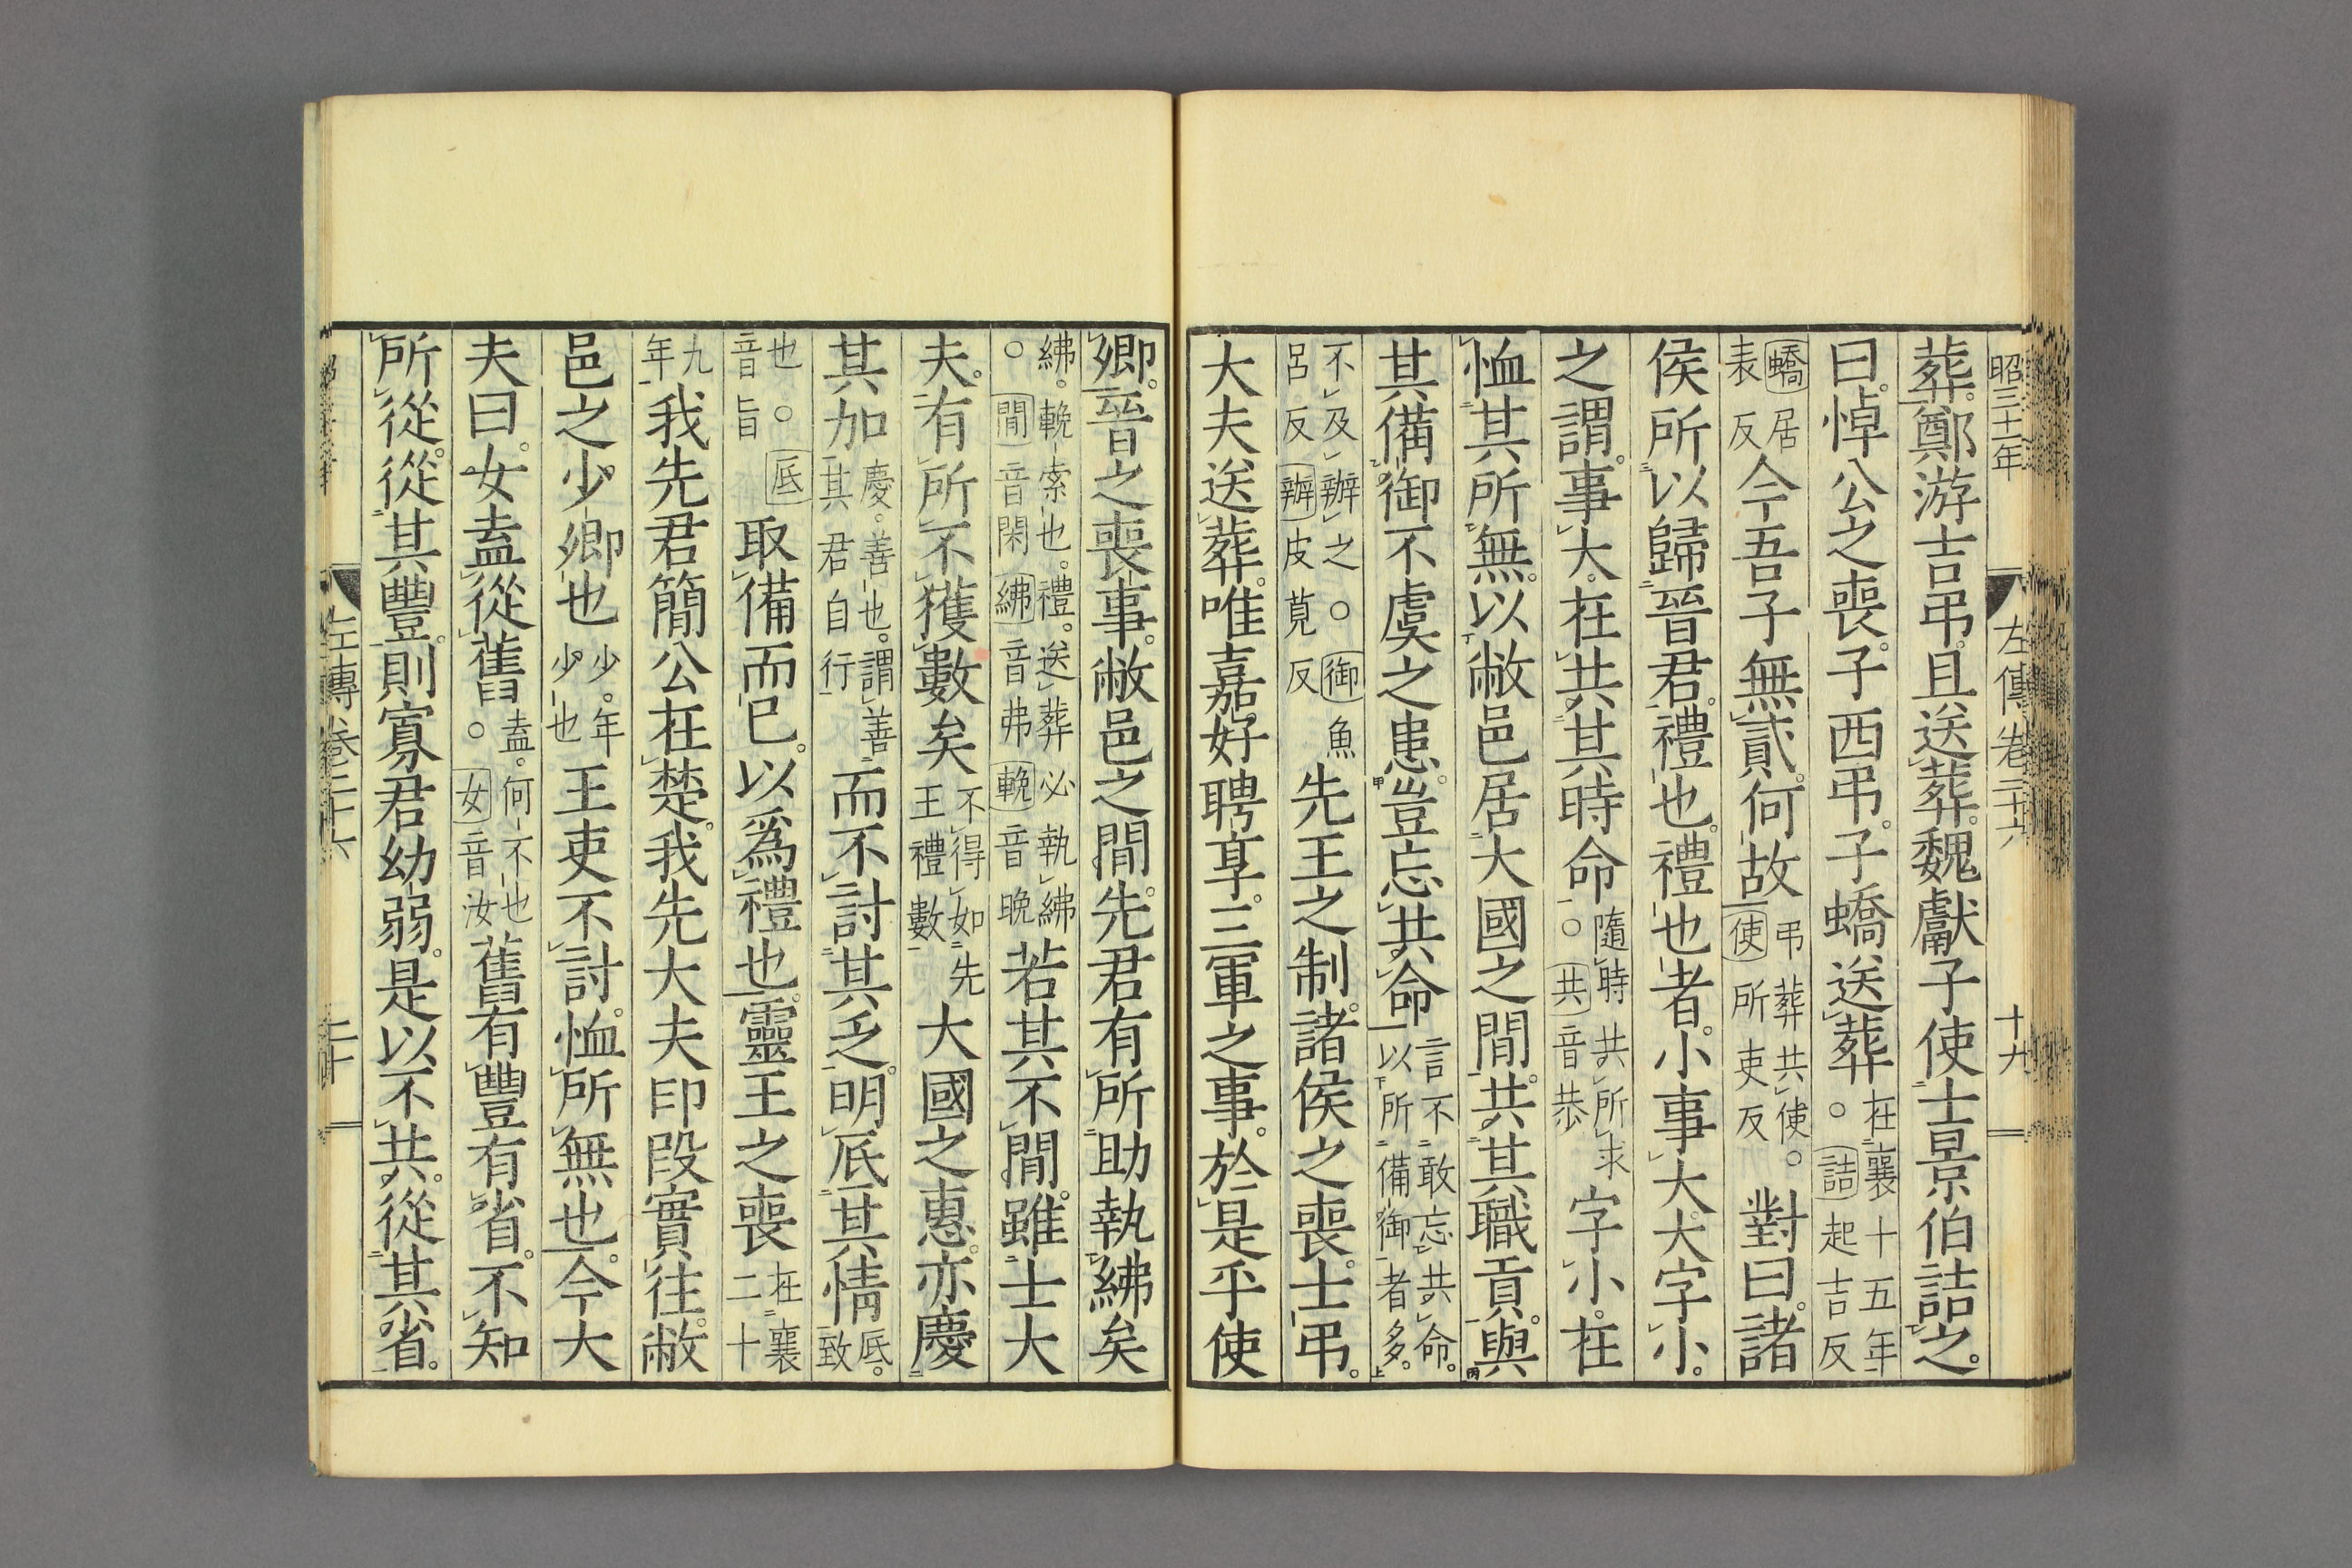 昭三十一年 左傳卷二十六 十九
葬鄭游吉弔且送葬魏獻子使士景伯詰之
曰悼公之喪子西弔子蟜送葬在襄十五年○詰起吉反
蟜居表反今吾子無貳何故弔葬共使○使所吏反對曰諸
侯所以歸晉君禮也禮也者小事大大字小
之謂事大在共其時命隨時共所求○共音恭字小在
恤其所無以敝邑居大國之閒共其職貢與
其備御不虞之患豈忘共命言不敢忘共命以所備御者多
不及辦之○御魚呂反辦皮莧反先王之制諸侯之喪士弔
大夫送葬唯嘉好聘享三軍之事於是乎使
卿晉之喪事敝邑之閒先君有所助執紼矣
紼輓索也禮送葬必執紼○閒音閑紼音弗輓音晚若其不閒雖士大
夫有所不獲數矣不得如先王禮數大國之惠亦慶
其加慶善也謂善其君自行而不討其乏明厎其情厎致
也○厎音旨取備而已以爲禮也靈王之喪在襄二十
九年我先君簡公在楚我先大夫印段實往敝
邑之少卿也少年少也王吏不討恤所無也今大
夫曰女盍從舊盍何不也○女音汝舊有豐有省不知
所從從其豐則寡君幼弱是以不共從其省
左傳卷二十六 二十